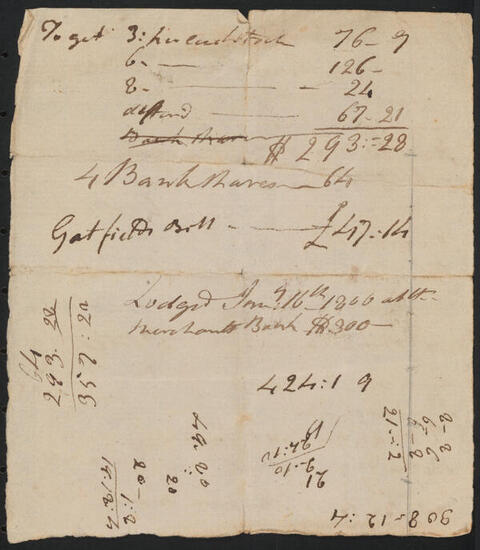 To get 3 : per cent stock 76 - 9
6 - — 126 -
8 - — - 24
defferd — 67 - 21
Bank Shares
$ 293 :=28
4 Bank shares — 64
Gatfields Bill — £47 : 14
Lodged Jany. 16th 1800 at the
Merchants Bank $300 —
424 : 1 9
64
293. 28
357 : 22
20 - 1 : 2
14 : 12 : 4
20
21
9 - 10
21 - : 2
308 = 12 : 4